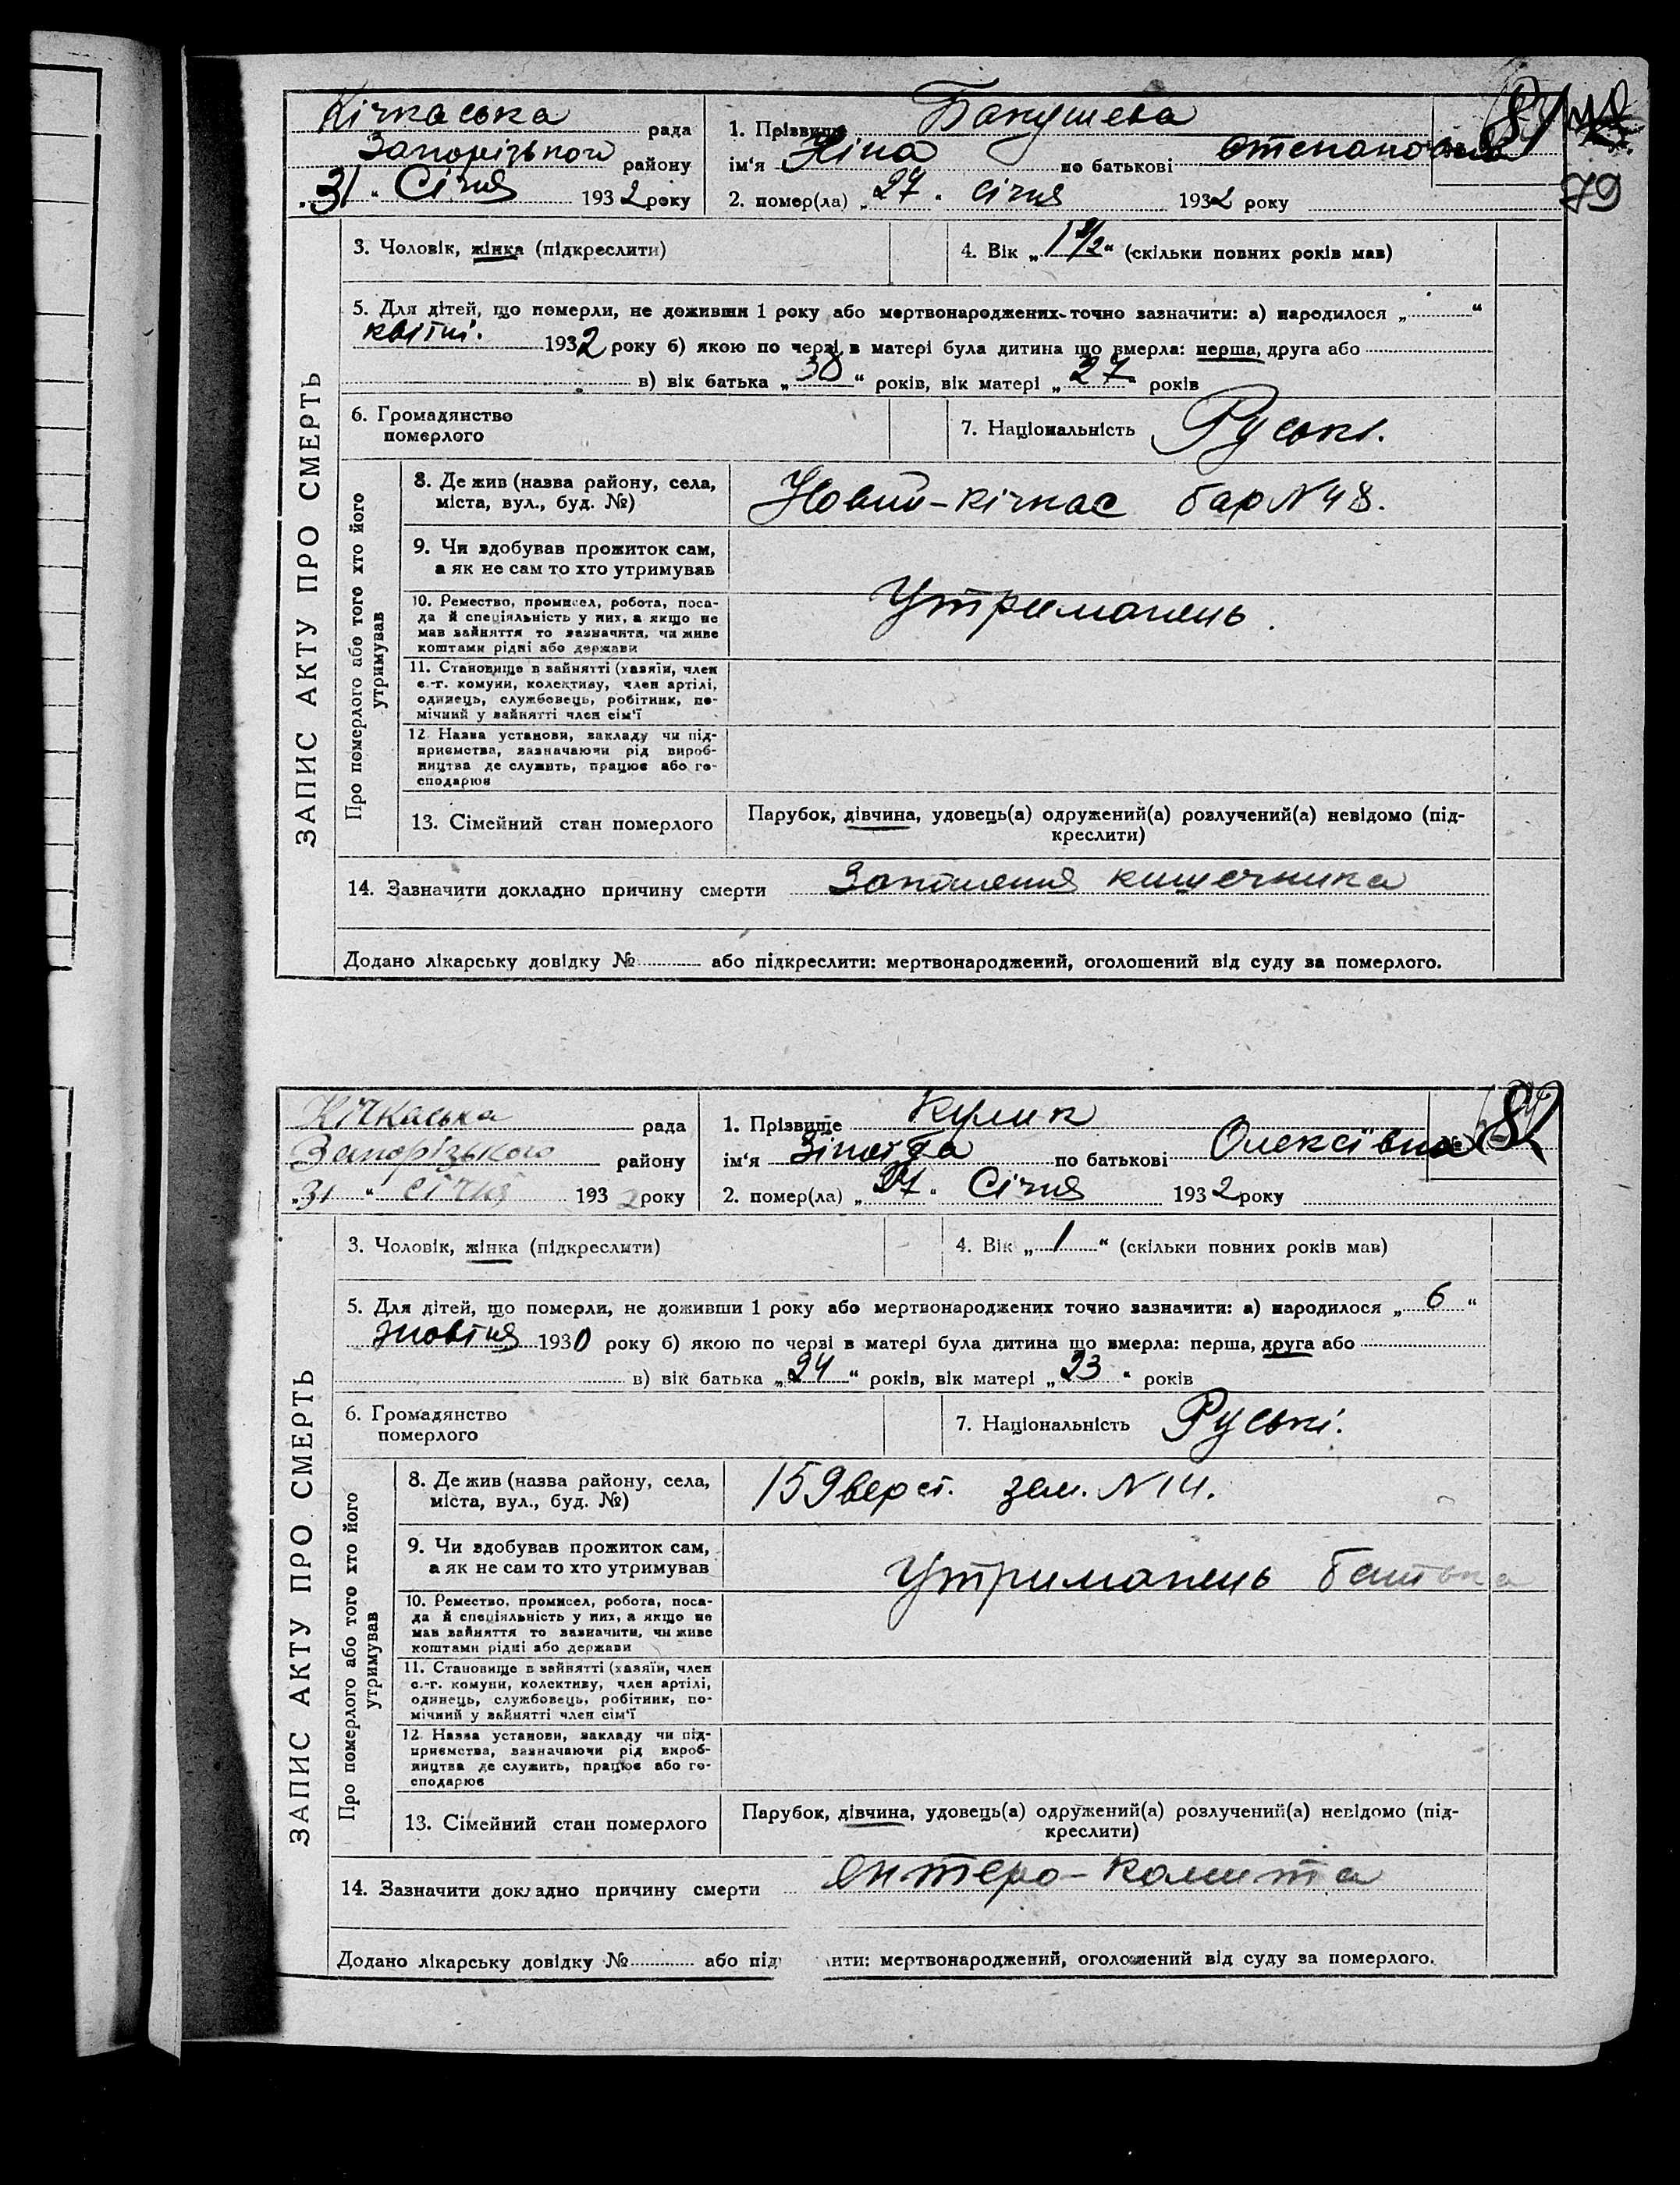 Кічкаська рада
Запорізького району
„31“ Січня 1932 року
1. Прізвище Бакушева
ім‘я Ніна по батькові Степановна
81
79
2. помер(ла) „27“ січня 1932 року
ЗАПИС АКТУ ПРО СМЕРТЬ
3. Чоловік, жінка (підкреслити)
4. Вік „1 1/2“ (скільки повних років мав)
5. Для дітей, що померли, не доживши 1 року або мертвонароджених точно зазначити: а) народилося „ “
квітні. 1932 року б) якою по черзі в матері була дитина що вмерла: перша, друга або
в) вік батька „38“ років, вік матері „27“ років
6. Громадянство
померлого
7. Національність Руські.
Про померлого або того хто його
утримував
8. Де жив (назва району, села,
міста, вул., буд. №)
Новий-кічкас бар N 48.
9. Чи здобував прожиток сам,
а як не сам то хто утримував
Утриманець.
10. Ремество, промисел, робота, поса-
да й спеціяльність у них, а якщо не
мав зайняття то зазначити, чи живе
коштами рідні або держави
11. Становище в зайнятті (хазяїн, член
с.-г. комуни, колективу, член артілі,
одинець, службовець, робітник, по-
мічний у зайнятті член сім‘ї
12. Назва установи, закладу чи під-
приємства, зазначаючи рід вироб-
ництва де служить, працює або го-
сподарює
13. Сімейний стан померлого
Парубок, дівчина, удовець(а) одружений(а) розлучений(а) невідомо (під-
креслити)
14. Зазначити докладно причину смерти Запалення кишечника
Додано лікарську довідку № або підкреслити: мертвонароджений, оголошений від суду за померлого.
Кічкаська рада
Запорізького району
„31“ січня 1932 року
1. Прізвище Кулик
ім‘я Зінаіда по батькові Олексівна
82
2. помер(ла) „27“ Січня 1932 року
ЗАПИС АКТУ ПРО СМЕРТЬ
3. Чоловік, жінка (підкреслити)
4. Вік „1“ (скільки повних років мав)
5. Для дітей, що померли, не доживши 1 року або мертвонароджених точно зазначити: а) народилося „6“
жовтня 1930 року б) якою по черзі в матері була дитина що вмерла: перша, друга або
в) вік батька „24“ років, вік матері „23“ років
6. Громадянство
померлого
7. Національність Руські.
Про померлого або того хто його
утримував
8. Де жив (назва району, села,
міста, вул., буд. №)
159 верст. зем. N 14.
9. Чи здобував прожиток сам,
а як не сам то хто утримував
Утриманець батька
10. Ремество, промисел, робота, поса-
да й спеціяльність у них, а якщо не
мав зайняття то зазначити, чи живе
коштами рідні або держави
11. Становище в зайнятті (хазяїн, член
с.-г. комуни, колективу, член артілі,
одинець, службовець, робітник, по-
мічний у зайнятті член сім‘ї
12. Назва установи, закладу чи під-
приємства, зазначаючи рід вироб-
ництва де служить, працює або го-
сподарює
13. Сімейний стан померлого
Парубок, дівчина, удовець(а) одружений(а) розлучений(а) невідомо (під-
креслити)
14. Зазначити докладно причину смерти ентеро-колита
Додано лікарську довідку № або під ити: мертвонароджений, оголошений від суду за померлого.